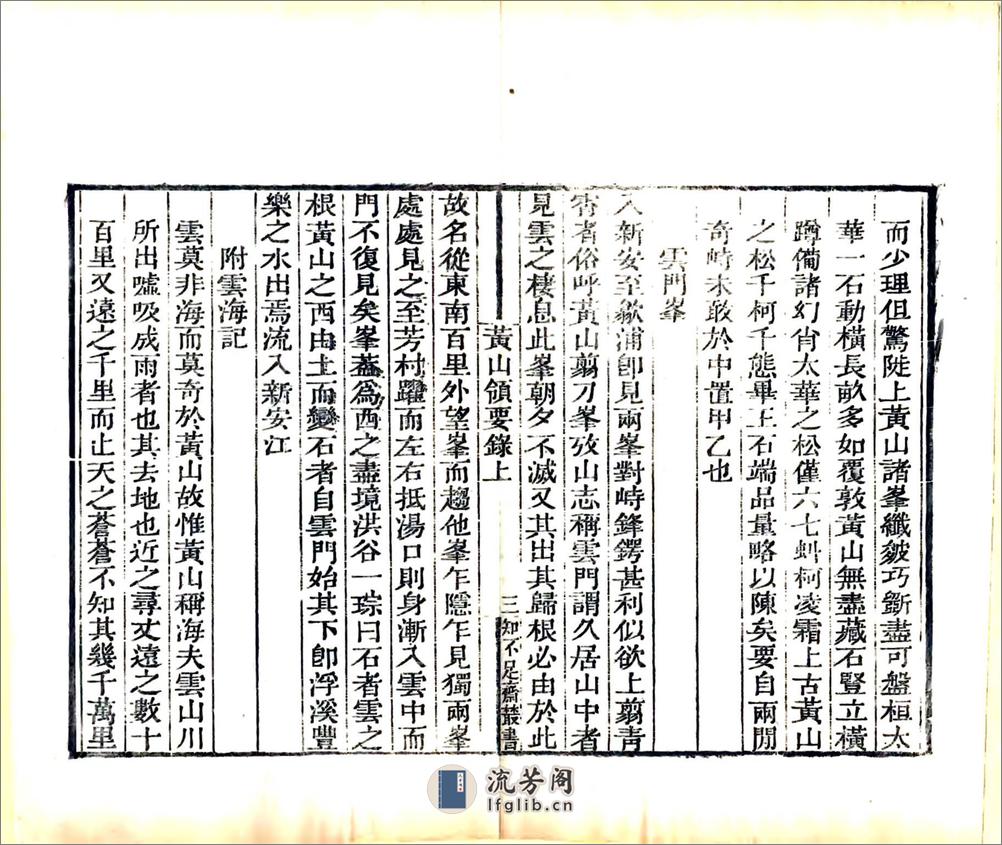 而少理但驚陡上黃山諸峯纖皴巧斵盡可盤桓太
華一石動橫長畝多如覆敦黃山無盡藏石豎立橫
蹲備諸幻肖太華之松僅六七虯柯凌霜上古黃山
之松千柯千態畢王石端品量略以陳矣要自兩閒
奇峙未敢於中置甲乙也
雲門峯
入新安至歙浦卽見兩峯對峙鋒鍔甚利似欲上翦靑
霄者俗呼黃山翦刀峯攷山志稱雲門謂久居山中者
見雲之棲息此峯朝夕不滅又其出其歸根必由於此
黃山領要錄上
三
知不足齋叢書
故名從東南百里外望峯而趨他峯乍隱乍見獨兩峯
處處見之至芳村躍而左右抵湯口則身漸入雲中而
門不復見矣峯蓋爲西之盡境洪谷一琮曰石者雲之
根黃山之西由土而變石者自雲門始其下卽浮溪豐
樂之水出焉流入新安江
附雲海記
雲莫非海而莫奇於黃山故惟黃山稱海夫雲山川
所出噓吸成雨者也其去地也近之尋丈遠之數十
百里又遠之千里而止天之蒼蒼不知其幾千萬里
流芳阁
lfglib.cn